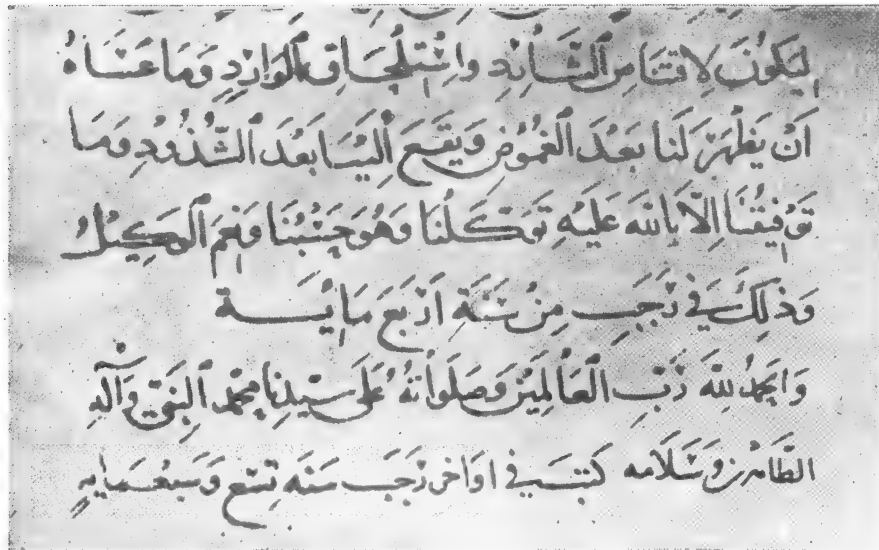 لِيَكُونَ لِاقتنَاصِ ٱلشَّارِدِ وَاسْتِلْحَاقِ ٱلوَارِدِ وَمَا عَسَاهُ
اَنْ يَظْهَرَ لَنَا بَعْدَ ٱلغُمُوُضِ وَيَقَعَ اِلَيْنَا بَعْدَ ٱلشُّذُوُذِ وَمَا
تَوْفِيقُنَا اِلّا بِاللهِ عَلَيْهِ تَوَكَّلْنَا وَهُوَ حَسْبُنَا وَنِعْمَ ٱلوَكِيْلُ
وَذٰلِكَ فِي رَجَبٍ مِنْ سَنَةِ اَرْبَعَ مِايَة
وَالحَمْدُ لِلهِ رَبِّ العَالَمِيْنَ وَصَلَوَاتُهُ عَلَى سَيِّدِنَا مُحَمَّدٍ النَّبِيِّ وَآلِهِ
الطَّاهِرِينَ وَسَلَامه كُتِبَ في اَوَاخِر رَجَب سَنَه تِسْع وَسَبْعمايه